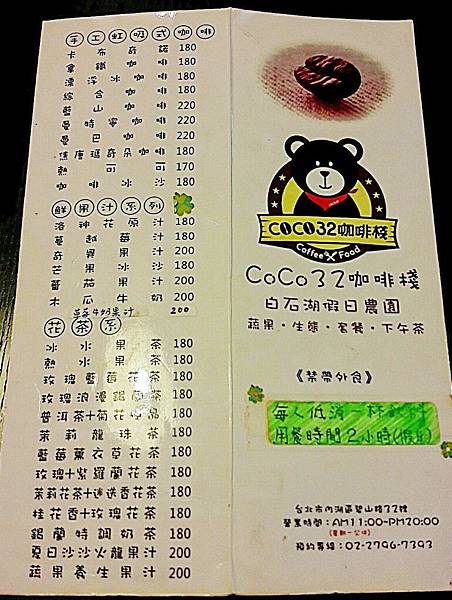 手工虹吸式咖啡
卡布奇諾 180
拿鐵咖啡 180
漂浮冰咖啡 180
綜合咖啡 180
藍山咖啡 220
曼特寧咖啡 220
曼巴咖啡 220
焦唐瑪奇朵咖啡 180
熱可可 170
咖啡冰沙 180
鮮果汁系列
洛神花原汁 180
蔓越莓汁 180
奇異果汁 200
芒果冰沙 180
蕃茄果汁 180
木瓜牛奶 200
草莓牛奶果汁 200
花茶系
冰水果茶 180
熱水果茶 180
玫瑰藍莓花茶 180
玫瑰浪漫錫蘭茶 180
普洱茶+菊花 180
茉莉龍珠茶 180
藍莓薰衣草花茶 180
玫瑰+紫羅蘭花茶 180
茉莉花茶+迷迭香花茶 180
桂花香+玫瑰花茶 180
錫蘭特調奶茶 180
夏日沙沙火龍果汁 200
蔬果養生果汁 200
COCO32咖啡棧
Coffee Food
CoCo32咖啡棧
白石湖假日農園
蔬果·生態·套餐·下午茶
《禁帶外食》
每人低消一杯飲料
用餐時間2小時(假日)
台北市內湖區碧山路32號
營業時間：AM11:00-PM20:00
(星期一公休)
預約專線：02-2796-7393